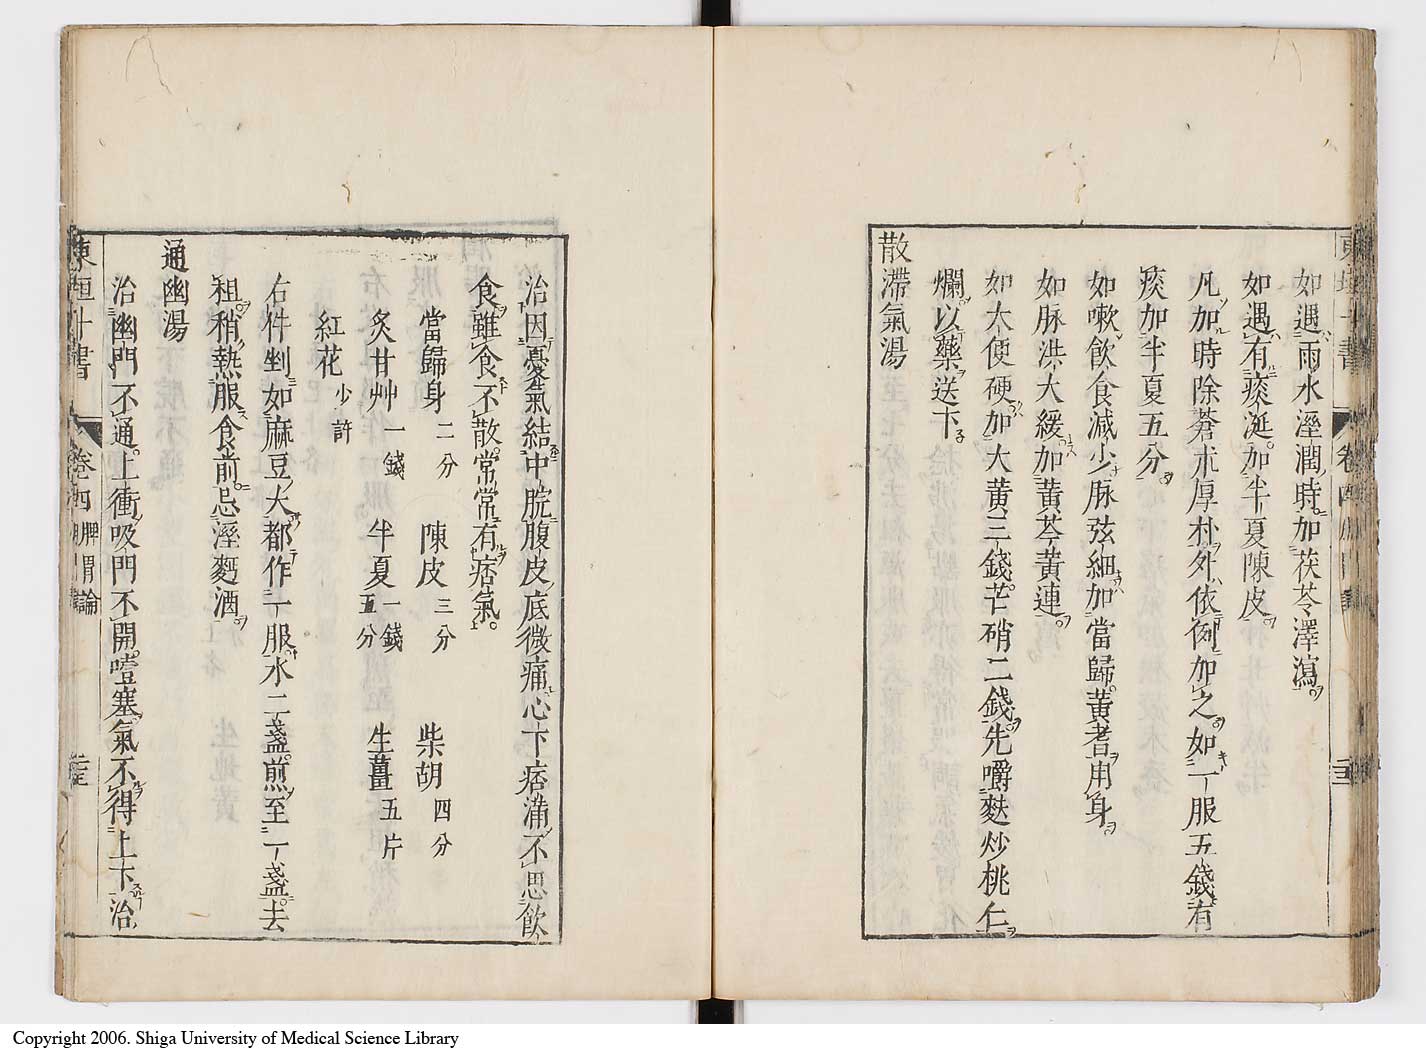 如遇雨水溼潤時加茯苓澤瀉
如遇有痰涎加半夏陳皮
凡加時除蒼朮厚朴外依例加之如一服五錢有
痰加半夏五分
如嗽飲食減少脉弦細加當歸黃耆用身
如脉洪大緩加黃芩黃連
如大便硬加大黃三錢芒硝二錢先嚼麩炒桃仁
爛以藥送下
散滯氣湯
治因憂氣結中脘腹皮底微痛心下痞滿不思飲
食雖食不散常常有痞氣
當歸身二分 陳皮三分 柴胡四分
炙甘艸一錢 半夏一錢五分 生薑五片
紅花少許
右件剉如麻豆大都作一服水二盞煎至一盞去
粗稍熱服食前忌溼麪酒
通幽湯
治幽門不通上衝吸門不開噎塞氣不得上下治
東垣十書 卷四 脾胃論
Copyright 2006. Shiga University of Medical Science Library